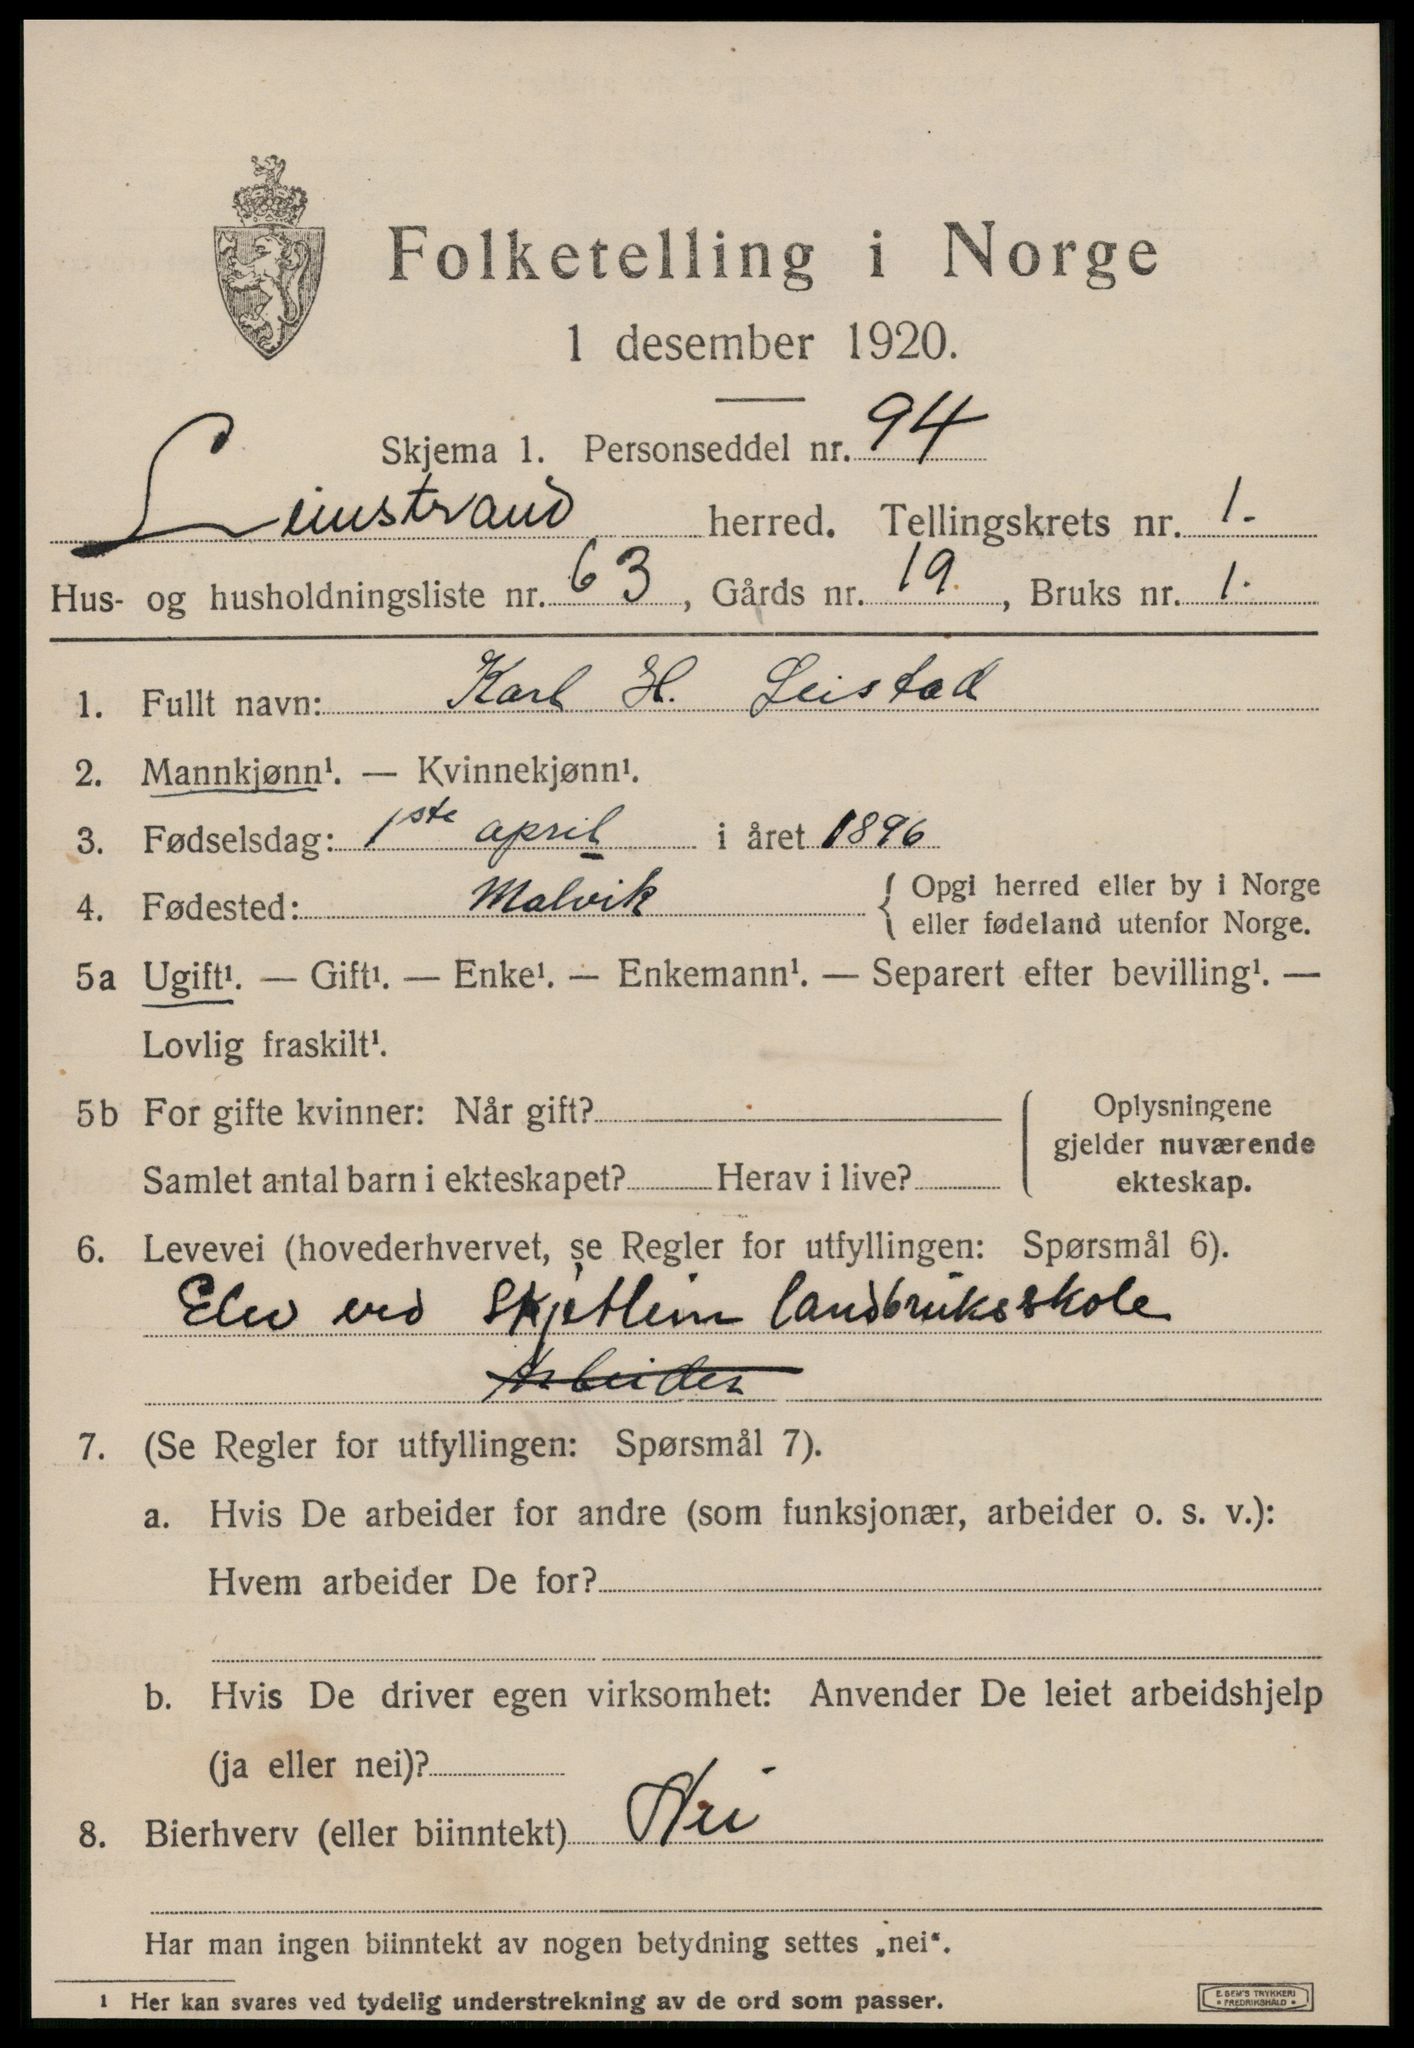 Folketelling i Norge
1 desember 1920.
Skjema 1. Personseddel nr. 94
Leinstrand herred. Tellingskrets nr. 1.
Hus- og husholdningsliste nr. 63, Gårds nr. 19, Bruks nr. 1.
1. Fullt navn: Karl H. Leistad
2. Mannkjønn¹. — Kvinnekjønn¹.
3. Fødselsdag: 1ste april i året 1896
4. Fødested: Malvik { Opgi herred eller by i Norge
eller fødeland utenfor Norge.
5a Ugift¹. — Gift¹. — Enke¹. — Enkemann¹. — Separert efter bevilling¹. —
Lovlig fraskilt¹.
5b For gifte kvinner: Når gift?
Samlet antal barn i ekteskapet? Herav i live?
Oplysningene
gjelder nuværende
ekteskap.
6. Levevei (hovederhvervet, se Regler for utfyllingen: Spørsmål 6).
Elev ved Skjetlein landbruksskole
Arbeider
7. (Se Regler for utfyllingen: Spørsmål 7).
a. Hvis De arbeider for andre (som funksjonær, arbeider o. s. v.):
Hvem arbeider De for?
b. Hvis De driver egen virksomhet: Anvender De leiet arbeidshjelp
(ja eller nei)?
8. Bierhverv (eller biinntekt) Nei
Har man ingen biinntekt av nogen betydning settes „nei“.
¹ Her kan svares ved tydelig understrekning av de ord som passer.
E. SEM'S TRYKKERI
• FREDRIKSHALD •